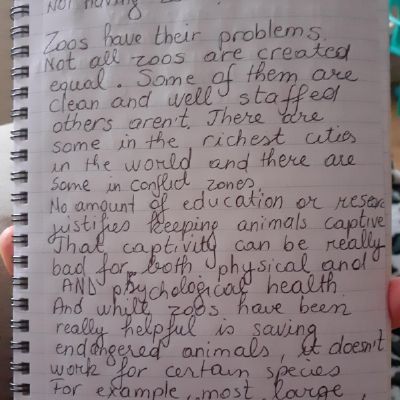 Not having
Zoos have their problems.
Not all zoos are created
equal. Some of them are
clean and well staffed
others aren't. There are
some in the richest cities
in the world and there are
Some in conflict zones.
No amount of education or
justifies keeping animals captive
That captivity can be really
bad for both physical and
AND psychological health
And while zoos have been
really helpful is saving
endangered animals, it doesn't
work for certain species
For example, most large,